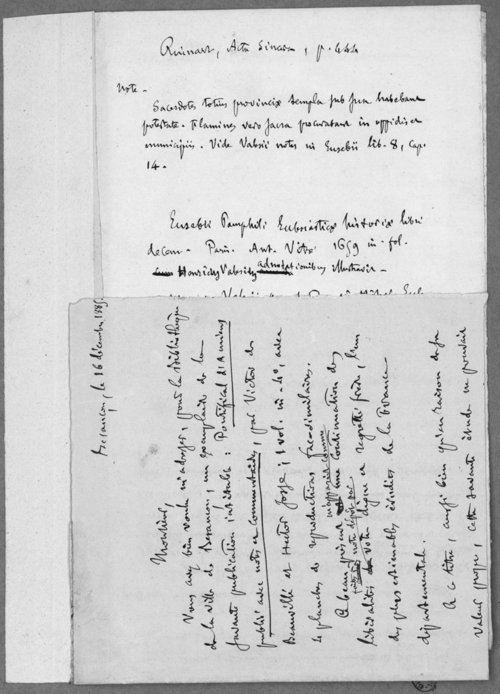 Ruinart, Acta Sincera, p. 444
Note -
Sacerdotes totius provinciæ templa sub sua habebant
potestate. Flamines vero sacra procurabant in oppidis et
municipiis. Vide Valesii notes in Eusebii lib. 8, cap.
14.
Eusebii Pamphili Ecclesiasticæ historiæ libri
decem - Paris. Ant. Vitré 1659 in-fol.
Henricus Valesius adnotationibus illustravit -
Besançon, le 16 décembre 1885
Monsieur,
Vous avez bien voulu m'adresser, pour la Bibliothèque
de la ville de Besançon, un exemplaire de la
savante publication intitulée : Pontifical d'Amiens
publié avec notes et commentaires, par Victor de
Beauvillé et Hector Josse ; 1 vol. in-4°, avec
4 planches de reproductions fac-similaires.
Ce beau présent m'apparaît comme une continuation des
libéralités de votre digne et regretté frère, l'un
des plus estimables érudits de la France
départementale.
A ce titre, aussi bien qu'en raison de sa
valeur propre, cette savante étude ne pouvait